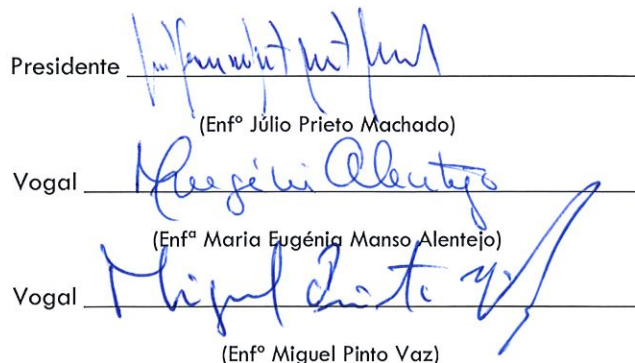 Presidente
(Enfº Júlio Prieto Machado)
Vogal Mª Eugénia Alentejo
(Enfª Maria Eugénia Manso Alentejo)
Vogal Miguel Pinto Vaz
(Enfº Miguel Pinto Vaz)